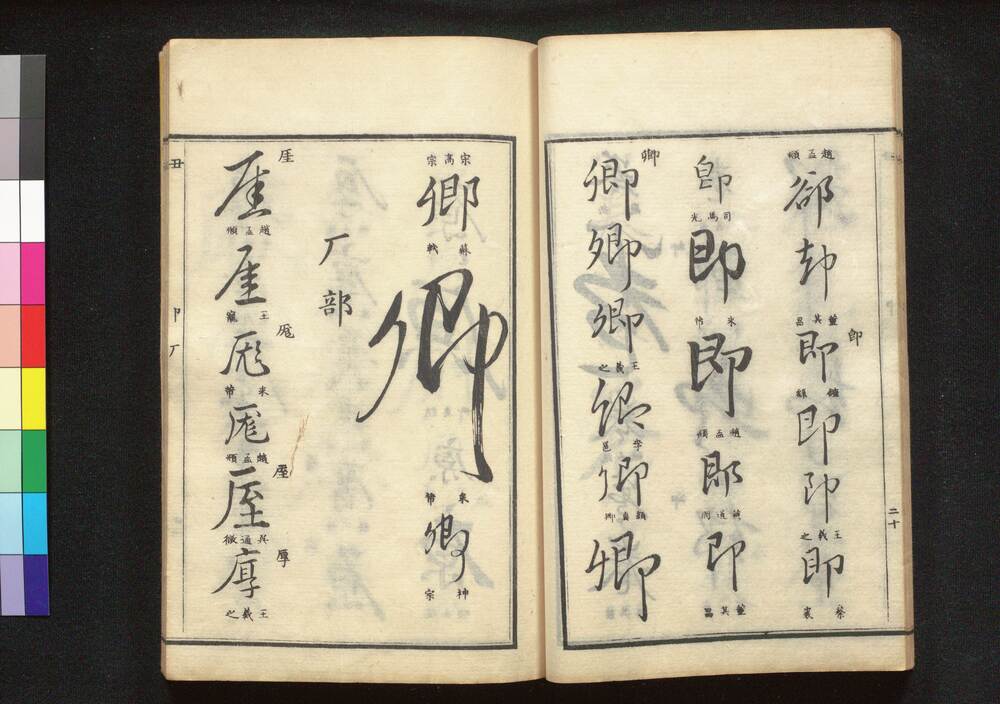 趙孟頫
卻
却
董其昌
即
即
鍾繇
即
即
王羲之
即
蔡襄
二十
即
司馬光
即
米芾
即
趙孟頫
即
即
董其昌
卿
卿
卿
卿
王羲之
卿
李邕
卿
顏真卿
卿
宋高宗
卿
蘇軾
卿
米芾
卿
神宗
厂部
厓
厓
趙孟頫
厓
王寵
厖
厖
米芾
厖
趙孟頫
厔
厔
吳通微
厚
厚
王羲之
丑
卩厂